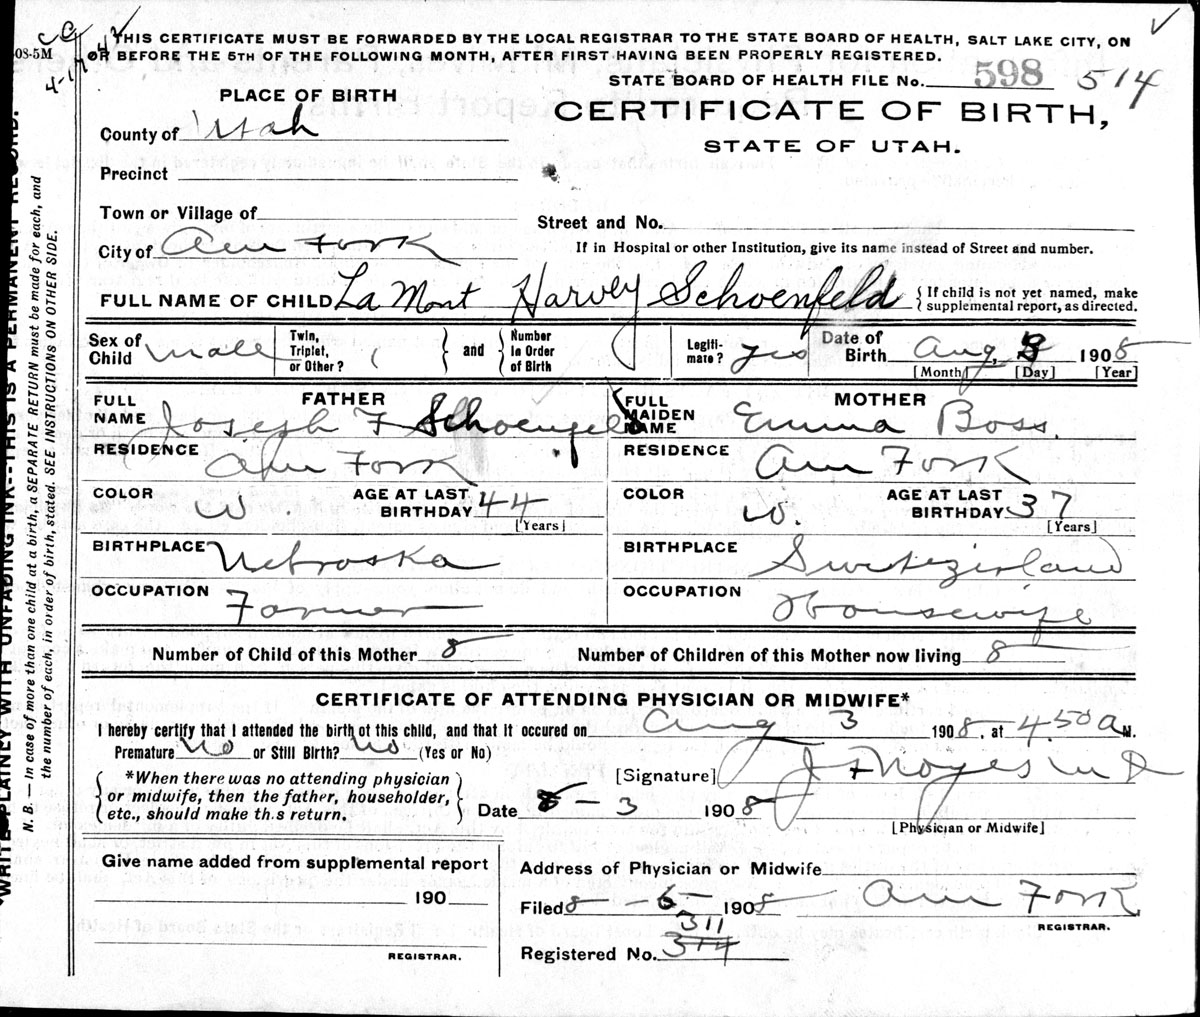 08-5M
THIS CERTIFICATE MUST BE FORWARDED BY THE LOCAL REGISTRAR TO THE STATE BOARD OF HEALTH, SALT LAKE CITY, ON
OR BEFORE THE 5TH OF THE FOLLOWING MONTH, AFTER FIRST HAVING BEEN PROPERLY REGISTERED.
STATE BOARD OF HEALTH FILE No. 598 514
PLACE OF BIRTH
CERTIFICATE OF BIRTH,
STATE OF UTAH.
County of Utah
Precinct
Town or Village of
Street and No.
City of Am Fork
If in Hospital or other Institution, give its name instead of Street and number.
FULL NAME OF CHILD La Mont Harvey Schoenfeld { If child is not yet named, make
supplemental report, as directed.
Sex of Child Male
Twin, Triplet, or Other?
and
Number in Order of Birth
Legiti-mate? yes
Date of Birth Aug. 3 1908
[Month] [Day] [Year]
FATHER
FULL NAME Joseph F Schoenfeld
RESIDENCE Am Fork
COLOR W. AGE AT LAST BIRTHDAY 44
[Years]
BIRTHPLACE Nebraska
OCCUPATION Farmer
MOTHER
FULL MAIDEN NAME Emma Boss.
RESIDENCE Am Fork
COLOR W. AGE AT LAST BIRTHDAY 37
[Years]
BIRTHPLACE Switzirland
OCCUPATION Housewife
Number of Child of this Mother 8 Number of Children of this Mother now living 8
CERTIFICATE OF ATTENDING PHYSICIAN OR MIDWIFE*
I hereby certify that I attended the birth of this child, and that it occured on Aug 3 1908. at 4.50 a M.
Premature No or Still Birth? No (Yes or No)
*When there was no attending physician
or midwife, then the father, householder,
etc., should make this return.
[Signature] J F Noyes M D
Date 8 - 3 1908
[Physician or Midwife]
Give name added from supplemental report
190
REGISTRAR.
Address of Physician or Midwife
Filed 8 - 6 - 1908 Am Fork
REGISTRAR.
311
Registered No. 314
WRITE PLAINLY WITH UNFADING INK--THIS IS A PERMANENT RECORD.
N. B. — In case of more than one child at a birth, a SEPARATE RETURN must be made for each, and
the number of each, in order of birth, stated. SEE INSTRUCTIONS ON OTHER SIDE.